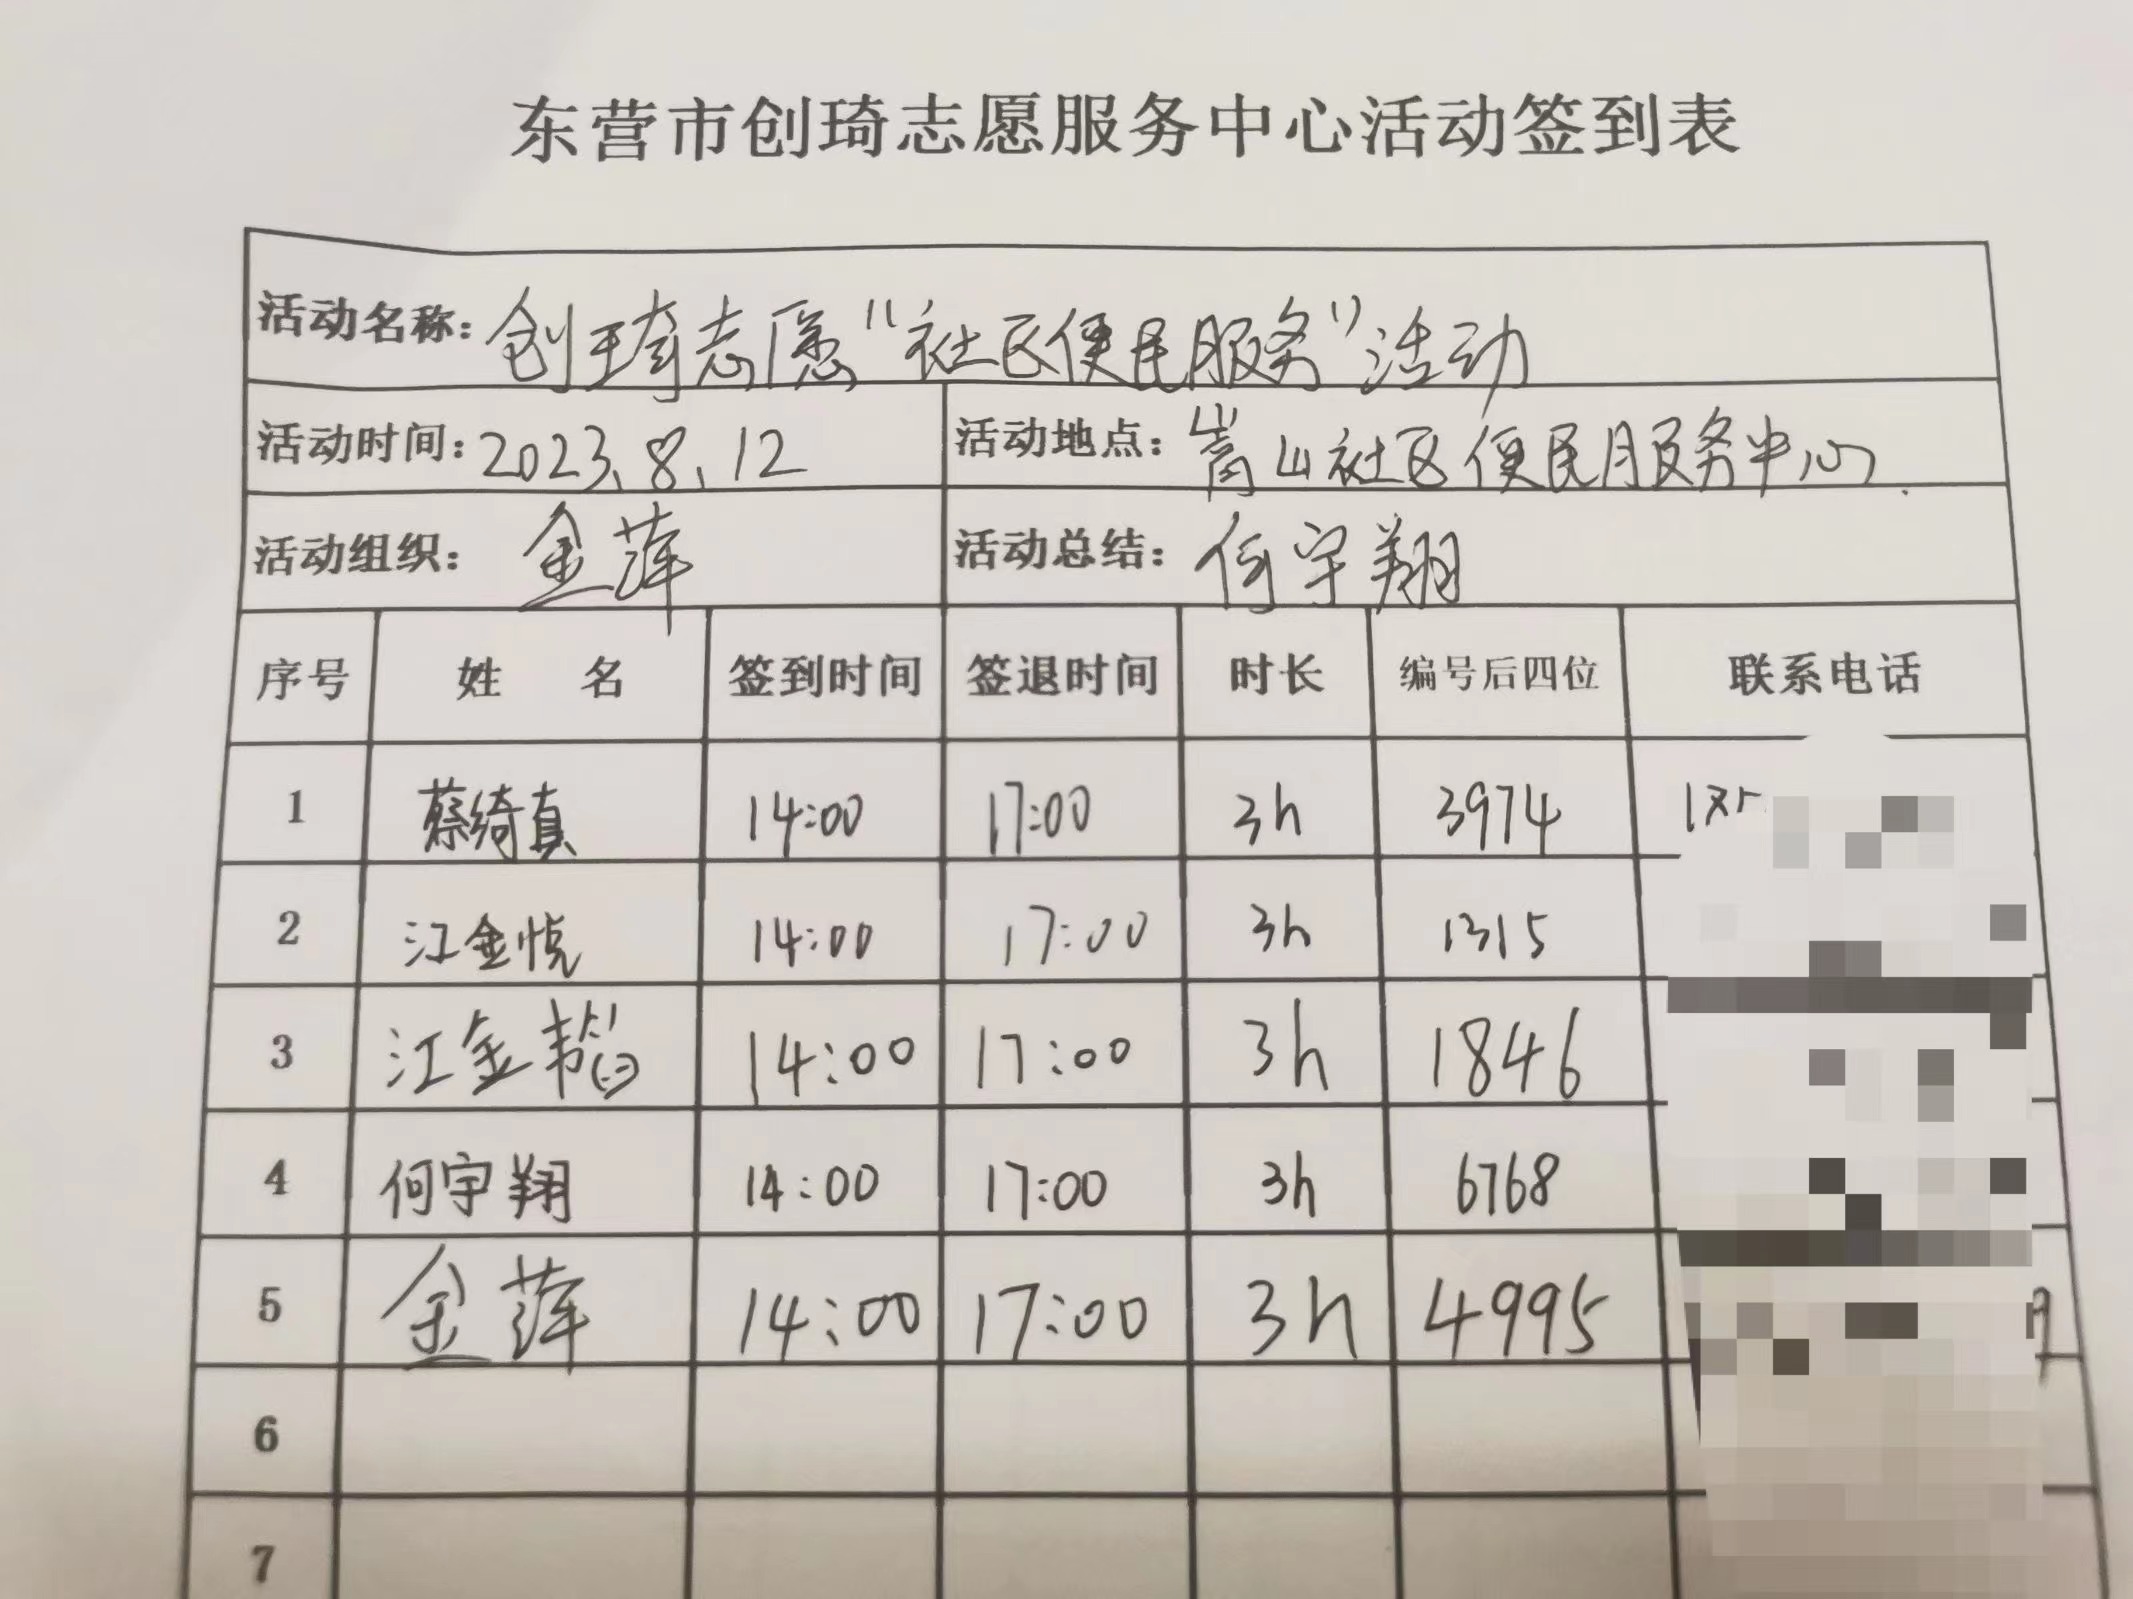 东营市创琦志愿服务中心活动签到表
活动名称：创琦志愿“社区便民服务”活动
活动时间：2023.8.12 活动地点：嵩山社区便民服务中心.
活动组织：金萍 活动总结：何宇翔
序号 姓 名 签到时间 签退时间 时长 编号后四位 联系电话
1 蔡绮真 14:00 17:00 3h 3974
2 江金悦 14:00 17:00 3h 1315
3 江金韬 14:00 17:00 3h 1846
4 何宇翔 14:00 17:00 3h 6768
5 金萍 14:00 17:00 3h 4995
6
7